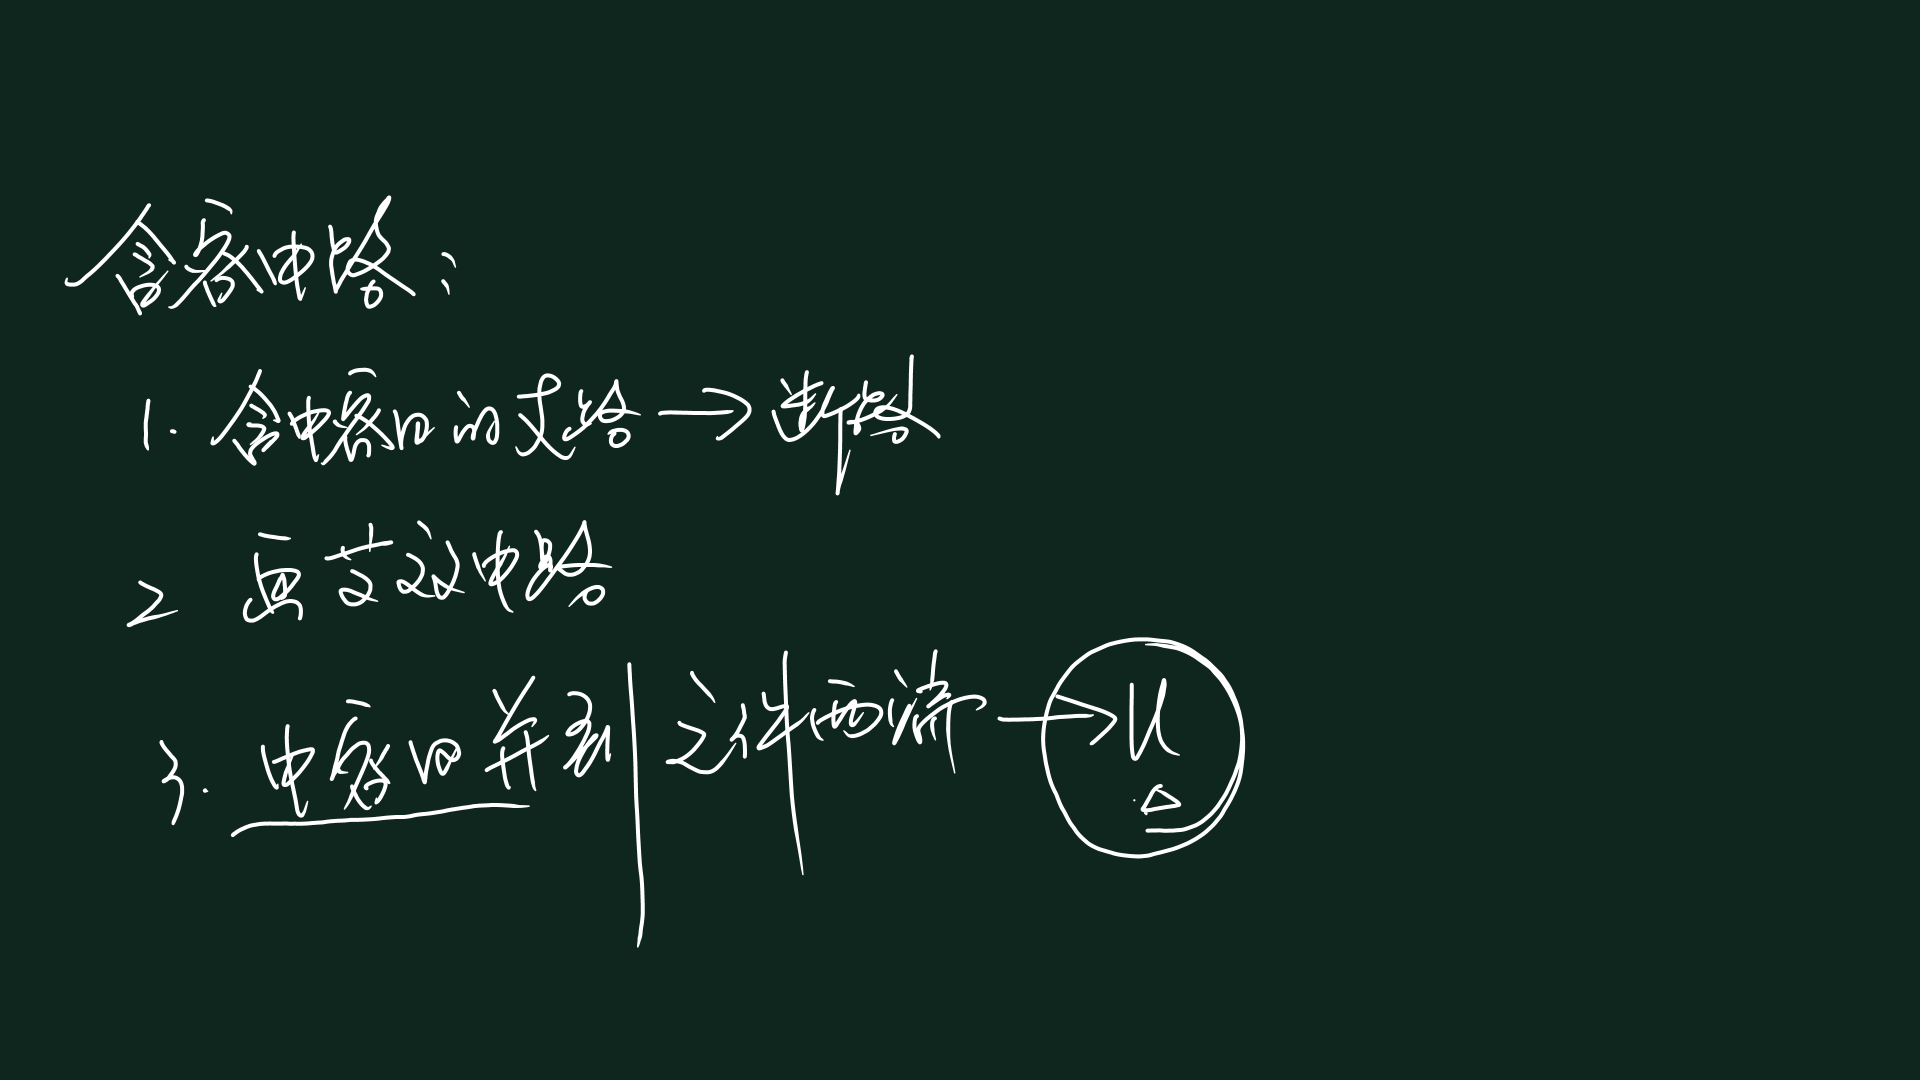 含容电路：
1. 含电容的支路→断路
2 画等效电路
3. 电容并到元件两端→U